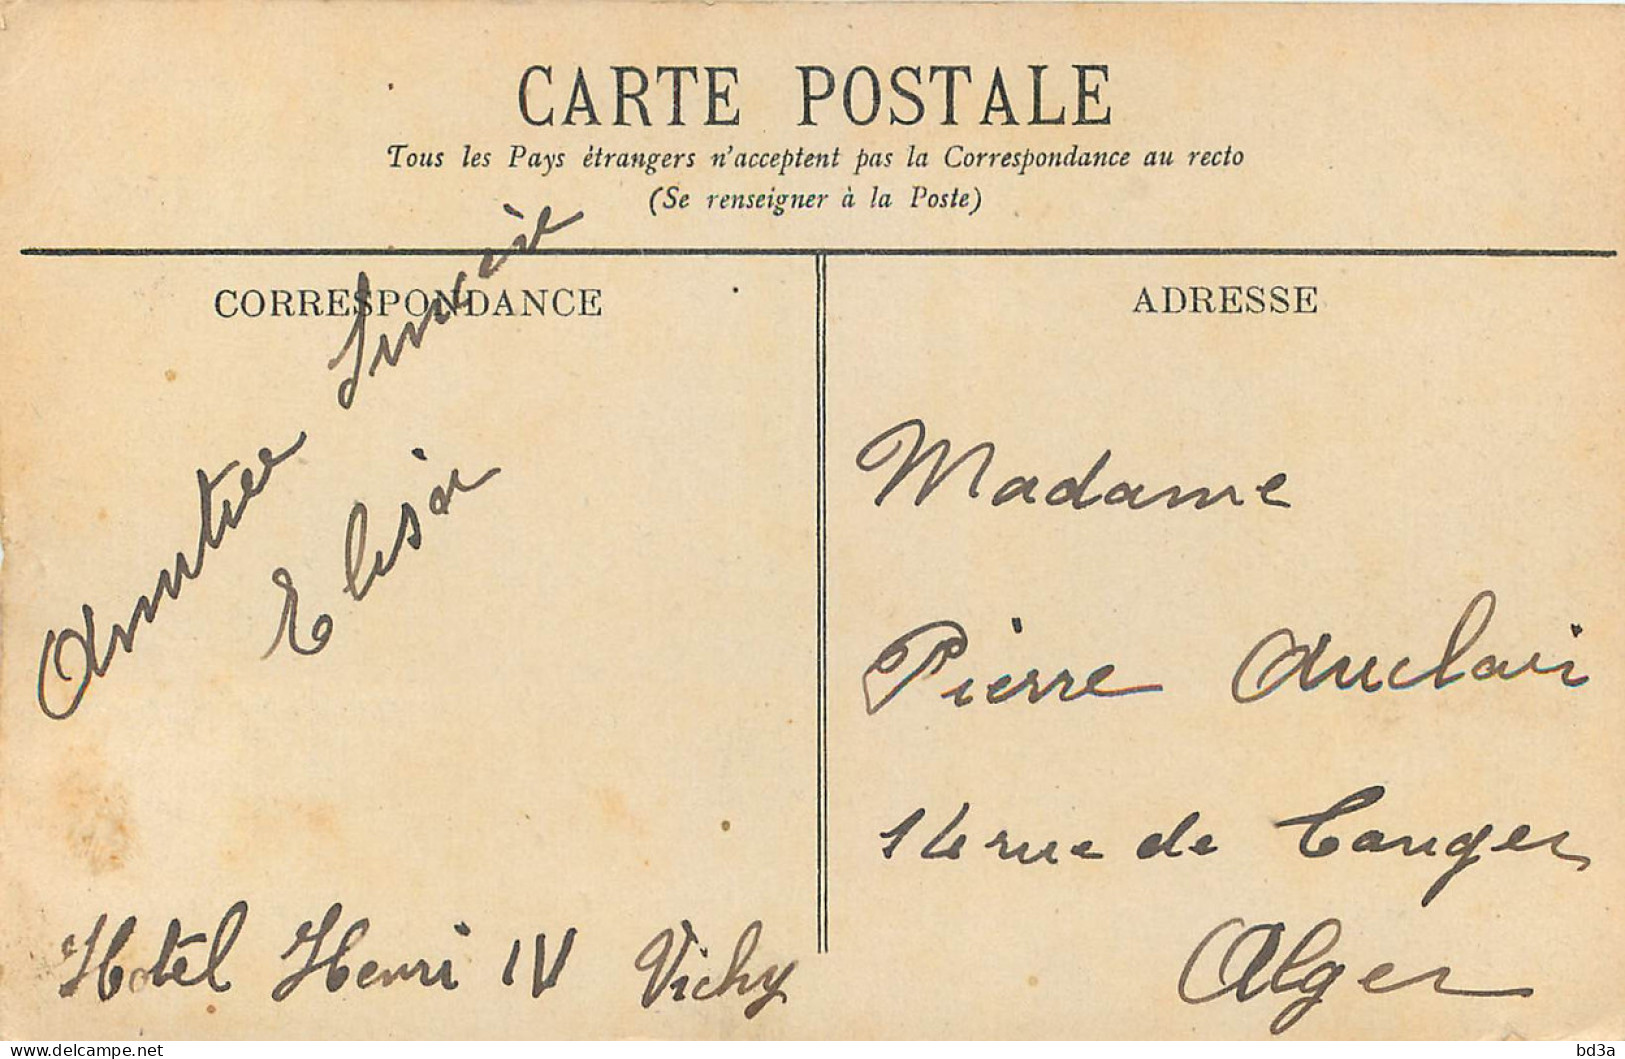 CARTE POSTALE
Tous les Pays étrangers n'acceptent pas la Correspondance au recto
(Se renseigner à la Poste)
CORRESPONDANCE
Amitiée Sincère
Elisa
Hotêl Henri IV Vichy
ADRESSE
Madame
Pierre Auclair
14 rue de Tanger
Alger
www.delcampe.net
bd3a